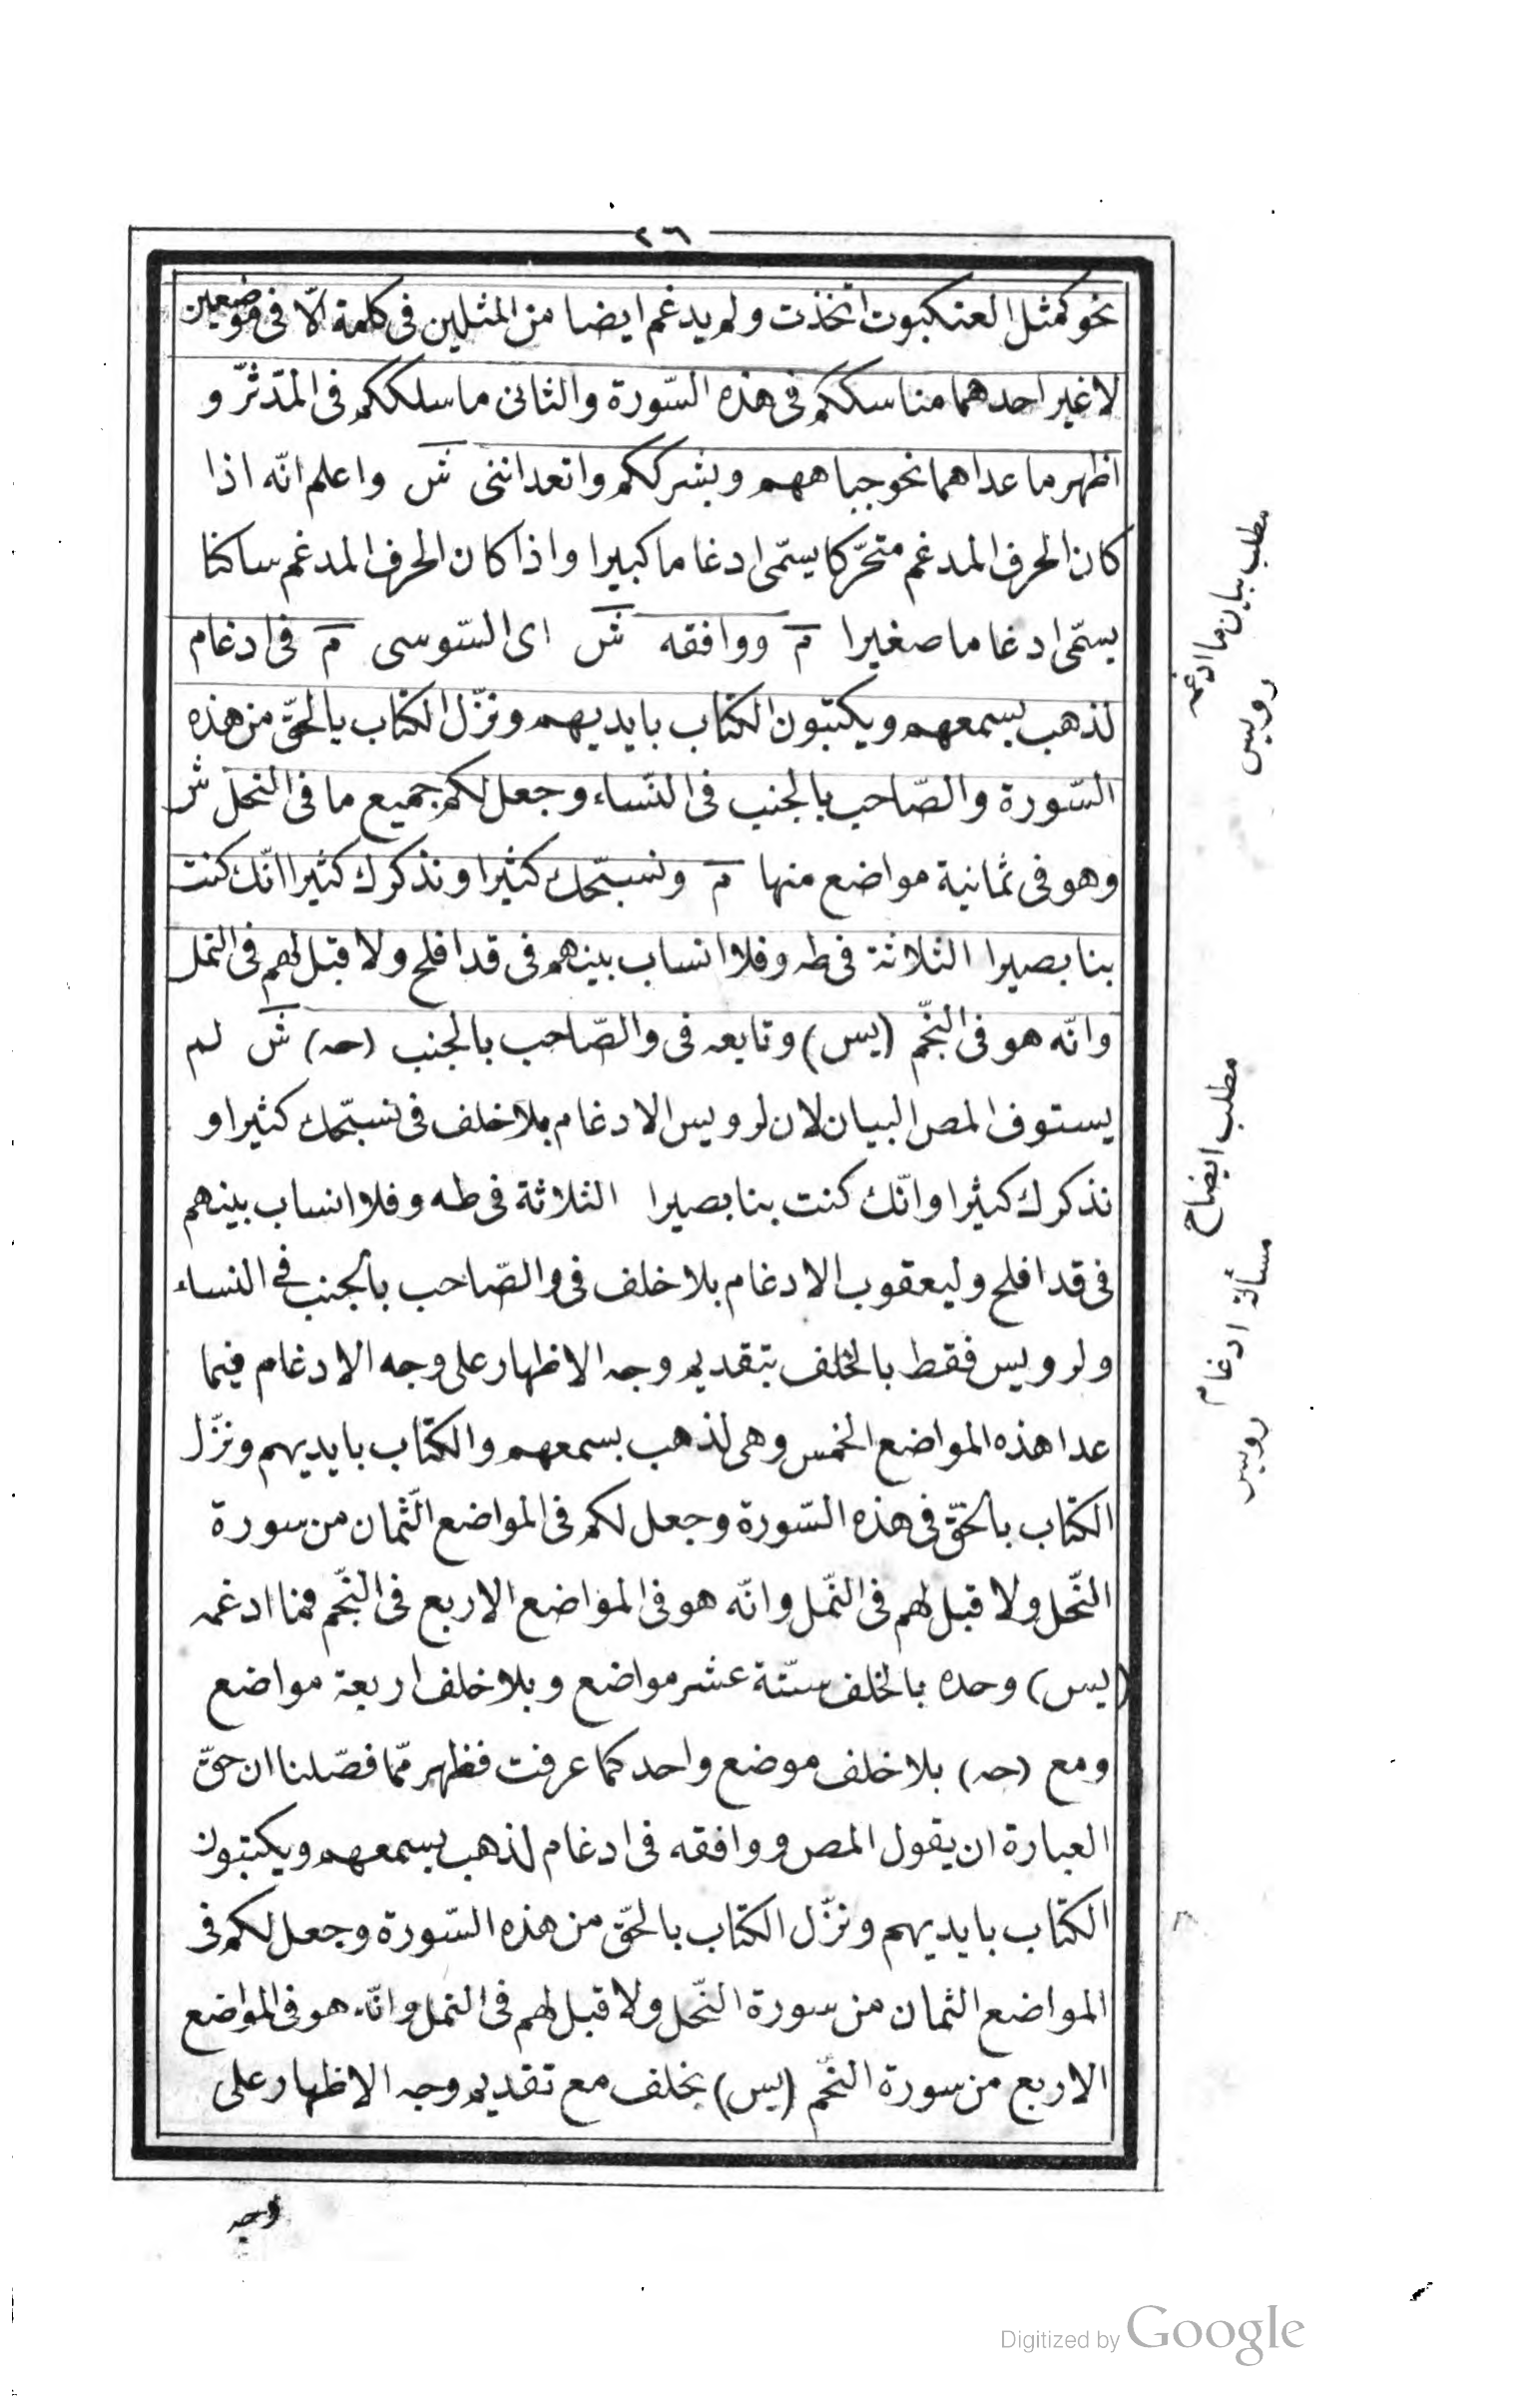 ٢٦
نحو كمثل العنكبوت اتخذت ولم يدغم ايضا من المثلين فى كلمة الّا فى موضعين
لا غير احدهما مناسككم فى هذه السّورة والثانى ما سلككم فى المدّثّر و
اظهر ما عداهما نحو جباههم وبشرككم واتعداننى ش واعلم انّه اذا
كان الحرف المدغم متحّركا يسمّى ادغاما كبيرا واذا كان الحرف المدغم ساكنا
يسمّى ادغاما صغيرا م ووافقه ش اى السّوسى م فى ادغام
لذهب بسمعهم ويكتبون الكتاب بايديهم ونزّل الكتاب بالحقّ من هذه
السّورة والصّاحب بالجنب فى النّساء وجعل لكم جميع ما فى النحل ش
وهو فى ثمانية مواضع منها م ونسبّحك كثيرا ونذكرك كثيرا انّك كنت
بنا بصيرا الثلاثة فى طه وفلا انساب بينهم فى قد افلح ولا قبل لهم فى النمل
وانّه هو فى النجّم (يس) وتابعه فى والصّاحب بالجنب (حه) ش لم
يستوف المص البيان لان لرويس الادغام بلا خلف فى نسبّحك كثيرا و
نذكرك كثيرا وانّك كنت بنا بصيرا الثلاثة فى طه وفلا انساب بينهم
فى قد افلح وليعقوب الادغام بلا خلف فى والصّاحب بالجنب فى النساء
ولرويس فقط بالخلف بتقديم وجه الاظهار على وجه الادغام فيما
عدا هذه المواضع الخمس وهى لذهب بسمعهم والكتاب بايديهم ونزّل
الكتاب بالحقّ فى هذه السّورة وجعل لكم فى المواضع الثّمان من سورة
النّحل ولا قبل لهم فى النّمل وانّه هو فى المواضع الاربع فى النّجم فما ادغمه
(يس) وحده بالخلف ستّة عشر مواضع وبلا خلف اربعة مواضع
ومع (حه) بلا خلف موضع واحد كما عرفت فظهر ممّا فصّلنا ان حقّ
العبارة ان يقول المص ووافقه فى ادغام لذهب بسمعهم ويكتبون
الكتاب بايديهم ونزّل الكتاب بالحقّ من هذه السّورة وجعل لكم فى
المواضع الثمان من سورة النّحل ولا قبل لهم فى النمل وانّه هو فى المواضع
الاربع من سورة النجّم (يس) بخلف مع تقديم وجه الاظهار على
وجه
مطلب بيان ما ادغمه
رويس
مطلب ايضاح
مسألة ادغام
رويس
Digitized by Google